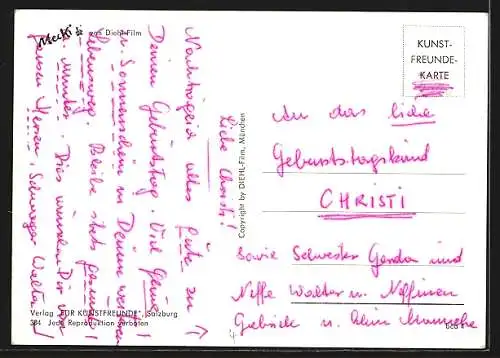 Mecki
von Diehl-Film
KUNST-
FREUNDE-
KARTE
Liebe Christi!
Nachträglich alles Gute zu
Deinem Geburtstag. Viel Glück
u. Sonnenschein in Deinem weiteren
Lebensweg. Bleibe stets gesund
u. munter. Dies wünschen Dir von
ganzem Herzen, Schwager Walter
An das liebe
Geburtstagskind
CHRISTI
sowie Schwester Gerda und
Neffe Walter u. Nichten
Gabriele u. klein
Copyright by DIEHL-Film, München
Verlag "FÜR KUNSTFREUNDE", Salzburg
384 Jede Reproduktion verboten